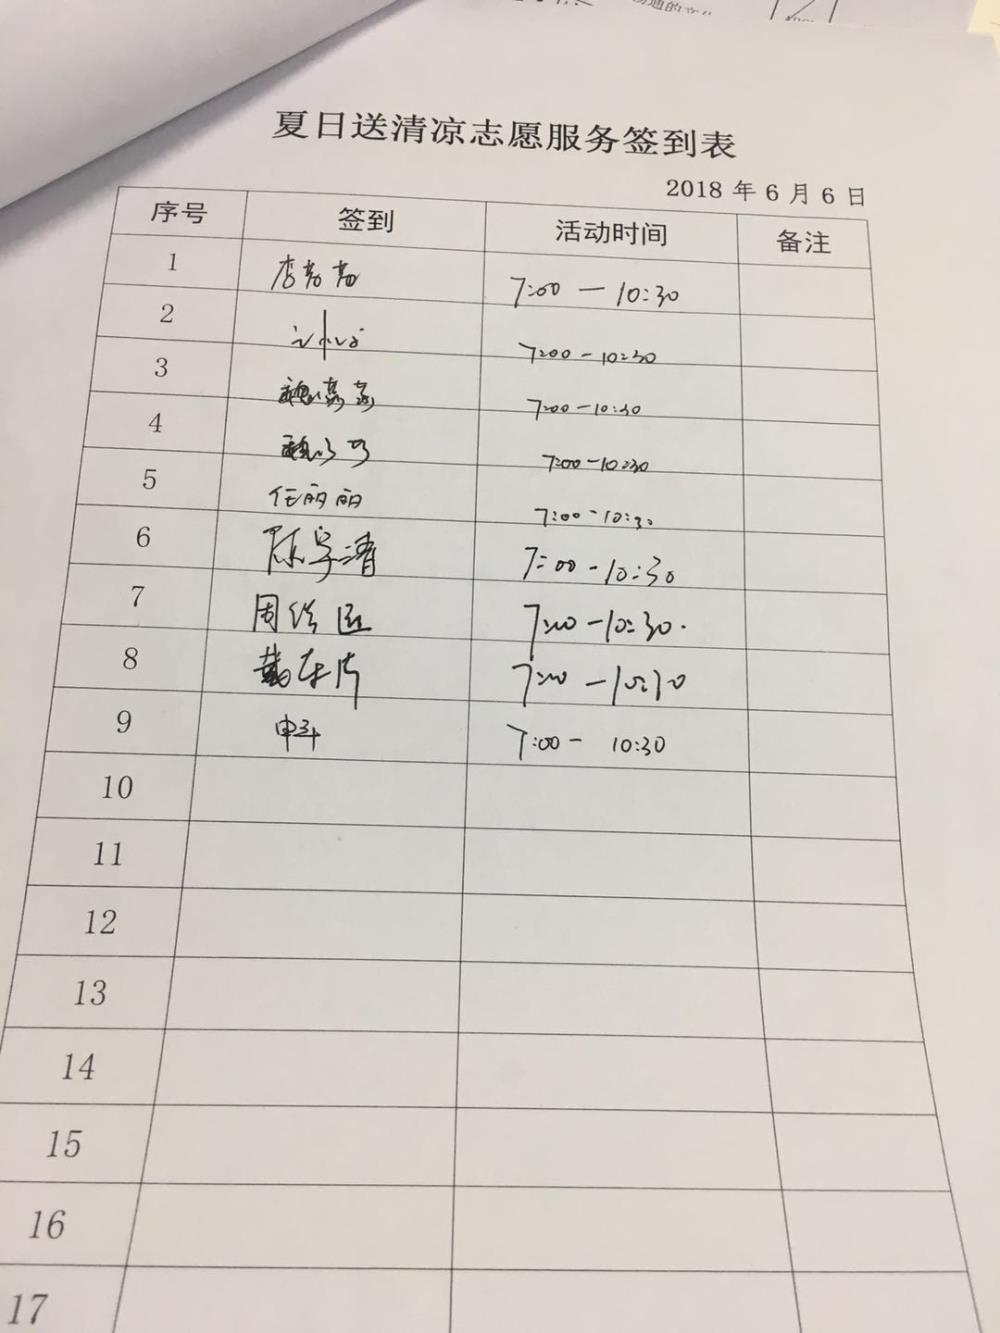 夏日送清凉志愿服务签到表
2018 年 6 月 6 日
序号 签到 活动时间 备注
1 7:00 — 10:30
2 7:00 - 10:30
3 7:00 - 10:30
4 7:00 - 10:30
5 任丽丽 7:00 - 10:30
6 陈宇清 7:00 - 10:30
7 7:00 - 10:30.
8 7:00 - 10:30
9 7:00 - 10:30
10
11
12
13
14
15
16
17